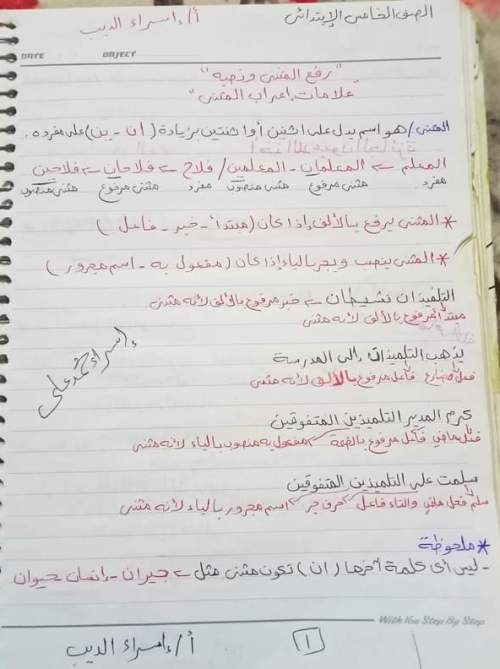 الصف الخامس الإبتدائى
أ/ إسراء الديب
DATE OBJECT
"رفع المثنى ونصبه"
"علامات إعراب المثنى"
المثنى/ هو اسم يدل على اثنين أو اثنتين بزيادة (ان - ين) على مفرده.
المعلم ← المعلمان - المعلمين/ فلاح ← فلاحان ← فلاحين
مفرد مثنى مرفوع مثنى منصوب مفرد مثنى مرفوع مثنى منصوب
* المثنى يرفع بالألف إذا كان (مبتدأ - خبر - فاعل)
* المثنى ينصب ويجر بالياء إذا كان (مفعول به - اسم مجرور)
التلميذان نشيطان ← خبر مرفوع بالألف لأنه مثنى
مبتدأ مرفوع بالألف لأنه مثنى
يذهب التلميذان إلى المدرسة
فعل مضارع فاعل مرفوع بالألف لأنه مثنى
كرم المدير التلميذين المتفوقين
فعل ماضي فاعل مرفوع بالضمة مفعول به منصوب بالياء لأنه مثنى
سلمت على التلميذين المتفوقين
سلم فعل ماضي والتاء فاعل حرف جر اسم مجرور بالياء لأنه مثنى
إسراء محمد على
* ملحوظة
- ليس أى كلمة آخرها (ان) تكون مثنى مثل ← جيران - إنسان حيوان
With You Step By Step
١
أ/ إسراء الديب